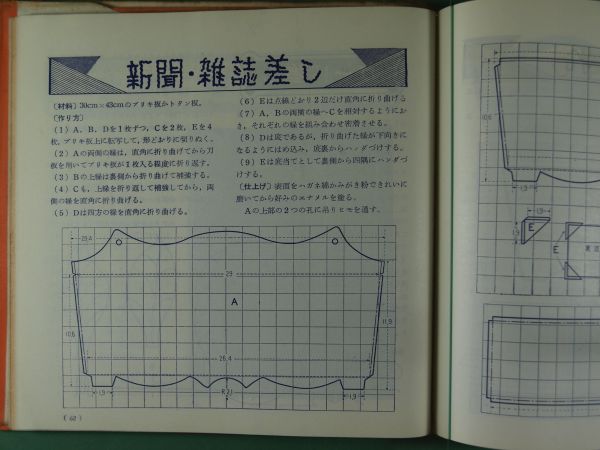 新聞・雑誌差し
〔材料〕30cm×43cmのブリキ板かトタン板。
〔作り方〕
(1) A、B、Dを1枚ずつ、Cを2枚、Eを4
枚、ブリキ板上に転写して、形どおりに切りぬく。
(2) Aの両側の縁は、直角に折り曲げてから刀
板を用いてブリキ板が1枚入る程度に折り返す。
(3) Bの上縁は裏側から折り曲げて補強する。
(4) Cも、上縁を折り返して補強してから、両
側の縁を直角に折り曲げる。
(5) Dは四方の縁を直角に折り曲げる。
(6) Eは点線どおり2辺だけ直角に折り曲げる
(7) A、Bの両横の縁へCを相対するようにお
き、それぞれの縁を組み合わせ密滑させる。
(8) Dは底であるが、折り曲げた縁が下向きに
なるようにはめ込み、底裏からハンダづけする。
(9) Eは底当てとして裏側から四隅にハンダづ
けする。
〔仕上げ〕表面をハガネ綿かみがき粉できれいに
磨いてから好みのエナメルを塗る。
Aの上部の2つの孔に吊りヒモを通す。
29,4
29
10,6
A
11,9
26,4
1,9
R2,1
1,9
(62)
1,9
E
1,9
E